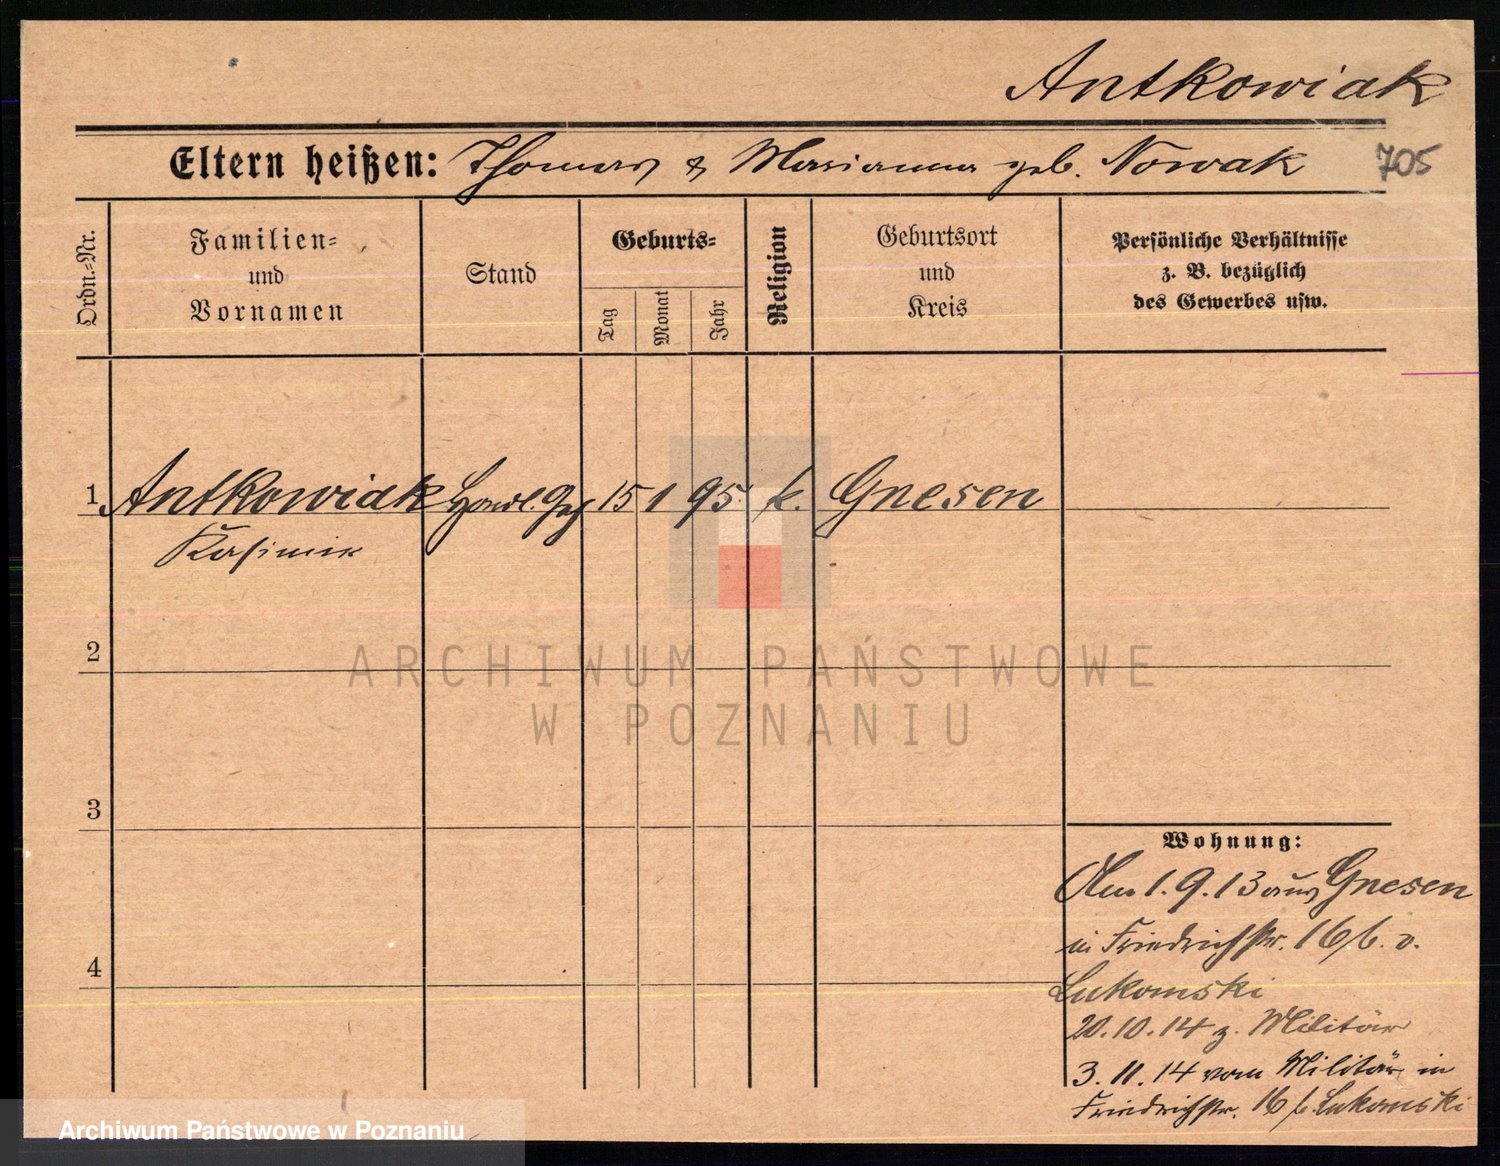 Antkowiak
Eltern heißen: Thomas & Marianna geb. Nowak 705
Ordn.=Nr.
Familien=
und
Vornamen
Stand
Geburts=
Tag
Monat
Jahr
Religion
Geburtsort
und
Kreis
Persönliche Verhältnisse
z. B. bezüglich
des Gewerbes usw.
1 Antkowiak Handl. Geh 15 1 95. k. Gnesen
Kasimir
2
ARCHIWUM PAŃSTWOWE
W POZNANIU
3
Wohnung:
Am 1.9.13 aus Gnesen
in Friedrichstr. 16/b.
4
Lukomski
20.10.14 z. Militär
3.11.14 vom Militär in
Friedrichstr. 16 b. Lukomski
Archiwum Państwowe w Poznaniu